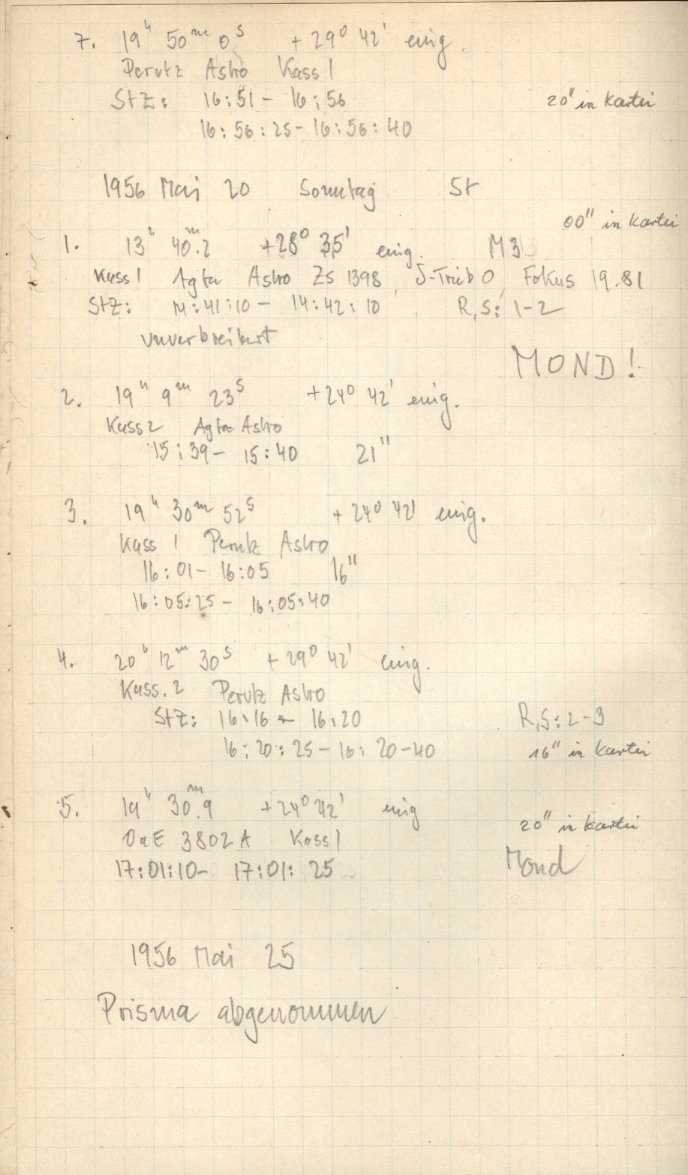 7. 19h 50m 0s + 29° 42' einig.
Perutz Astro Kass 1
StZ: 16:51 - 16:56 20" in Kartei
16:56:25 - 16:56:40
1956 Mai 20 Sonntag St
00" in Kartei
1. 13h 40.m2 +28° 35' einig. M3
Kass 1 Agfa Astro ZS 1398, S-Trieb 0, Fokus 19.81
StZ: 14:41:10 - 14:42:10 R,S: 1-2
unverbreitert
MOND!
2. 19h 9m 23s +24° 42' einig.
Kass 2 Agfa Astro
15:39 - 15:40 21"
3. 19h 30m 52s +24° 42' einig.
Kass 1 Perutz Astro
16:01 - 16:05 16"
16:05:25 - 16:05:40
4. 20h 12m 30s + 29° 42' einig.
Kass. 2 Perutz Astro
StZ: 16:16 - 16:20 R,S: 2-3
16:20:25 - 16:20-40 16" in Kartei
5. 19h 30.m9 +24° 42' einig
20" in Kartei
OaE 3802 A Kass 1
17:01:10 - 17:01:25 Mond
1956 Mai 25
Prisma abgenommen